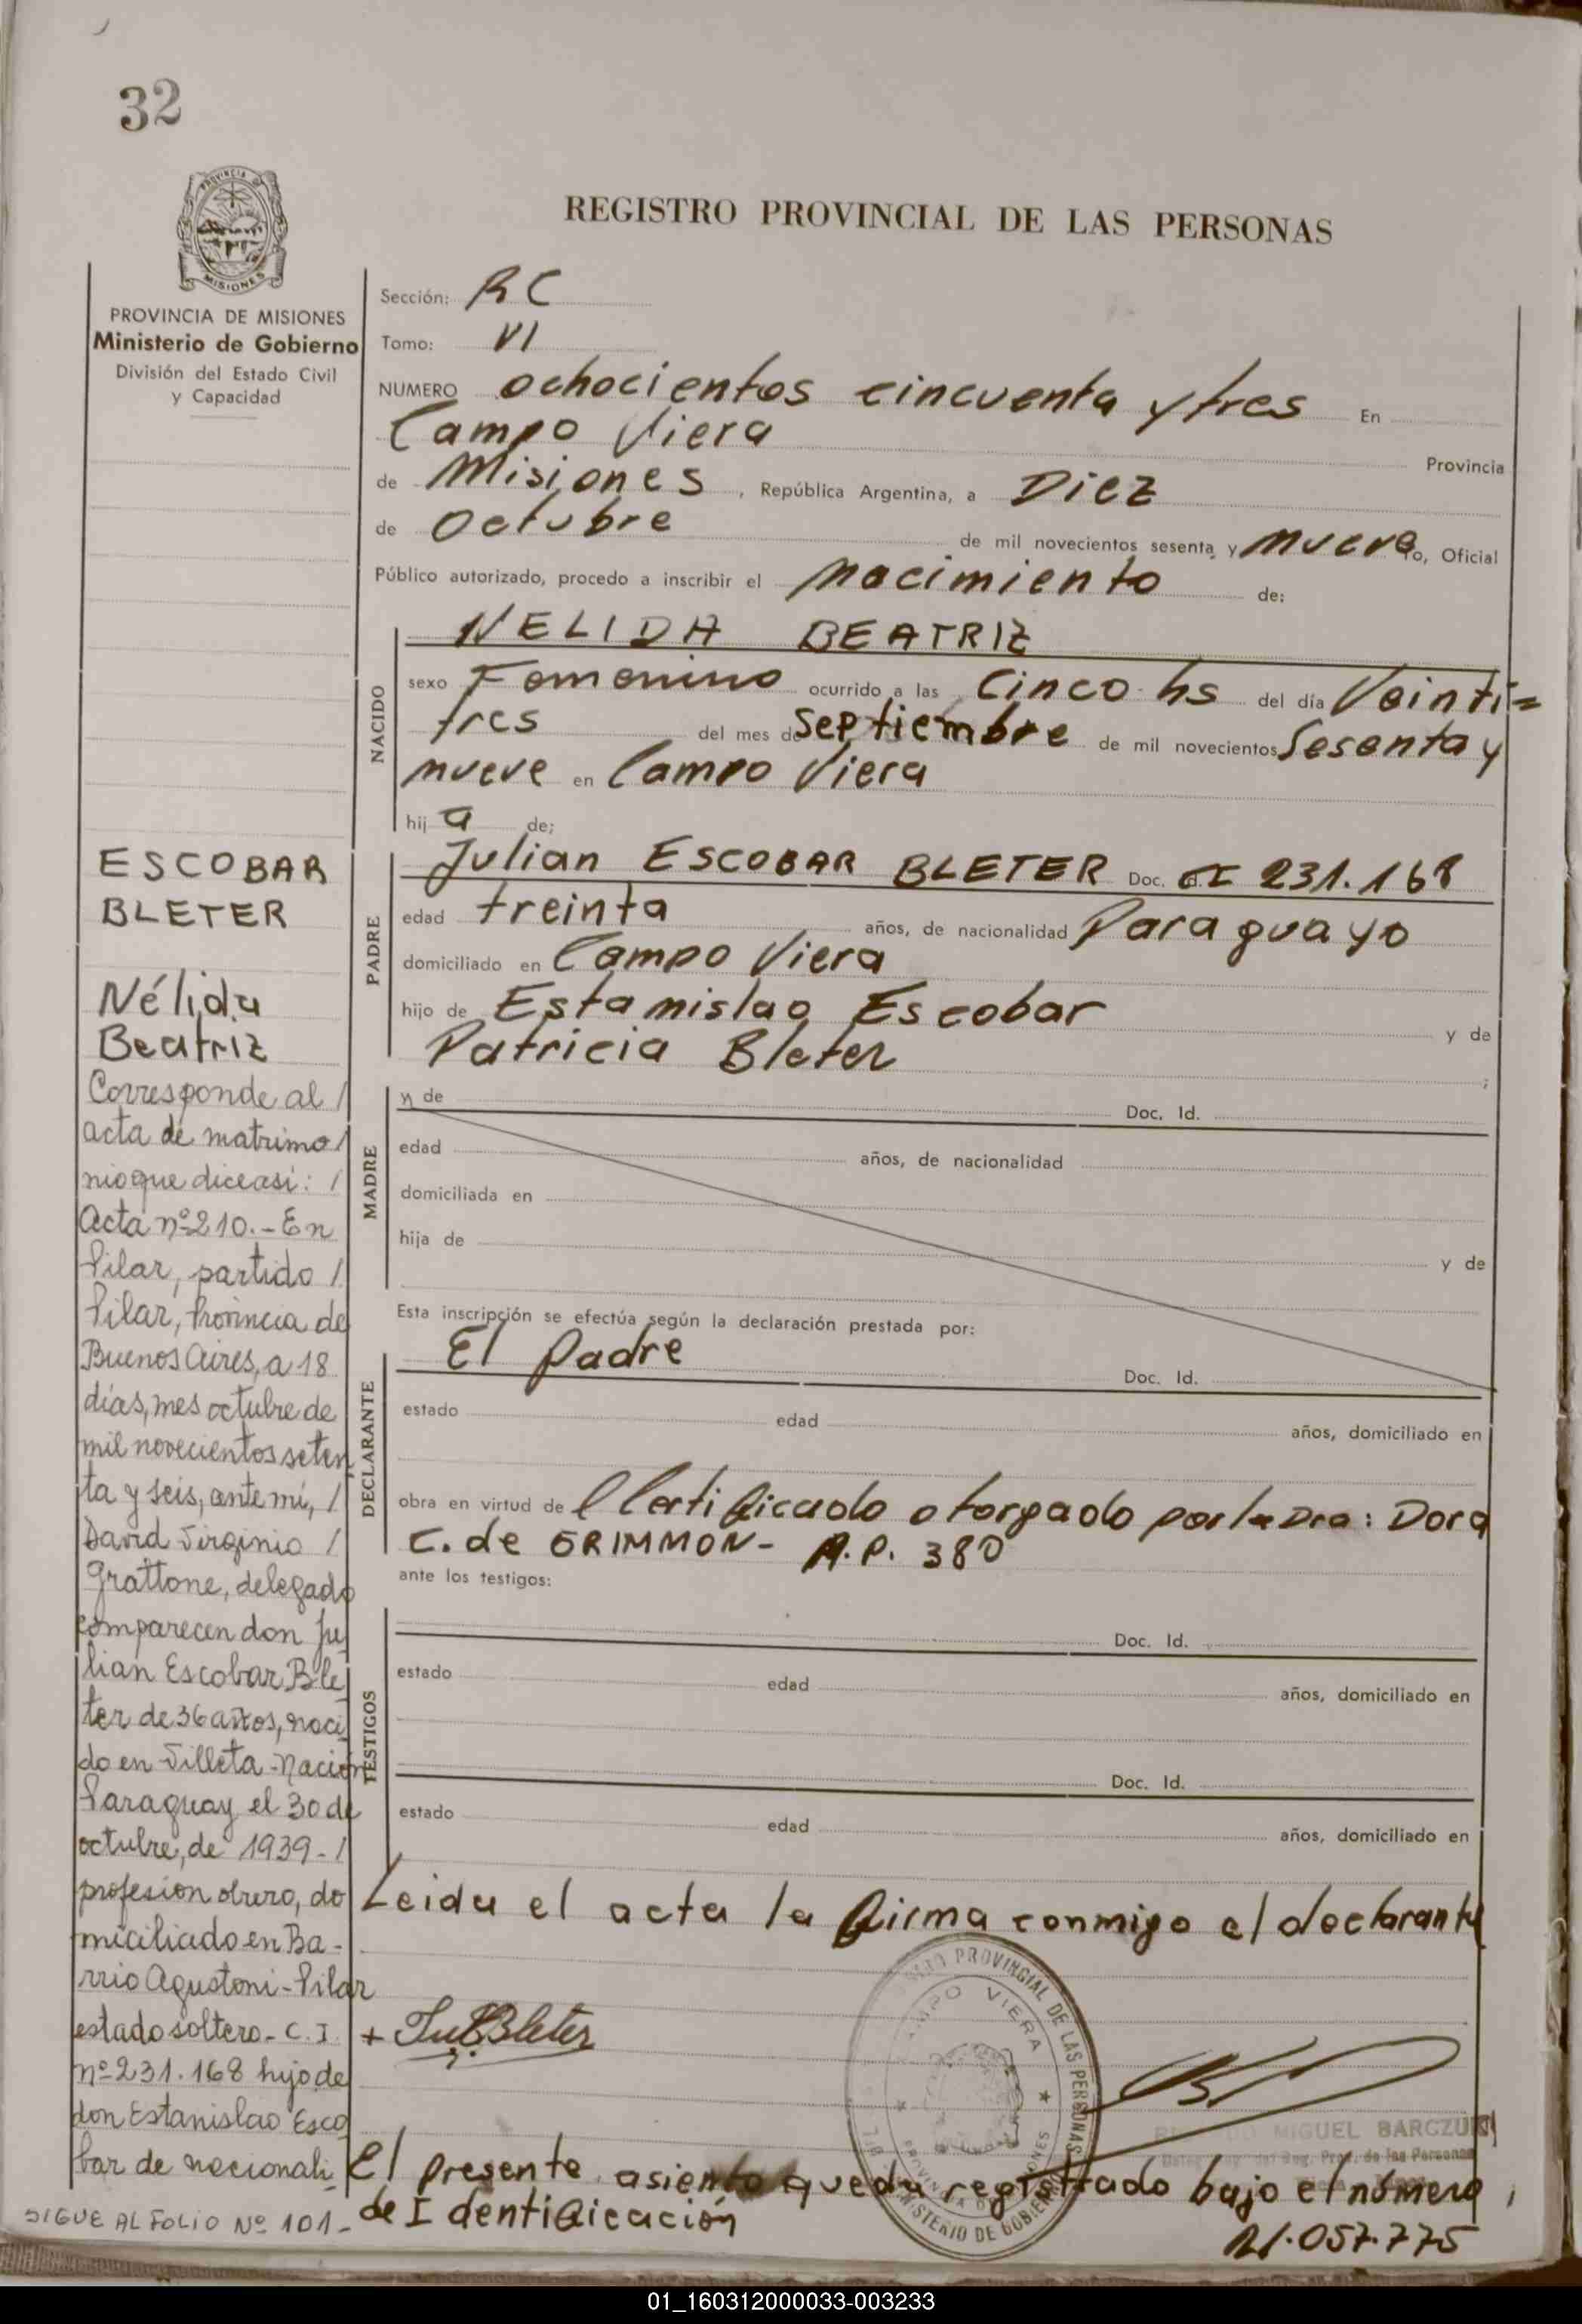 32
PROVINCIA DE
MISIONES
REGISTRO PROVINCIAL DE LAS PERSONAS
PROVINCIA DE MISIONES
Ministerio de Gobierno
División del Estado Civil
y Capacidad
Sección: RC
Tomo: VI
NUMERO ochocientos cincuenta y tres En
Campo Viera Provincia
de Misiones, República Argentina, a Diez
de Octubre de mil novecientos sesenta y nueve Yo, Oficial
Público autorizado, procedo a inscribir el nacimiento de:
NACIDO
NELIDA BEATRIZ
sexo Femenino ocurrido a las Cinco hs del día Veinti=
tres del mes de Septiembre de mil novecientos Sesenta y
nueve en Campo Viera
hija de;
PADRE
Julian ESCOBAR BLETER Doc. CI 231.168
edad treinta años, de nacionalidad Paraguayo
domiciliado en Campo Viera
hijo de Estamislao Escobar y de
Patricia Bleter ;
MADRE
y de Doc. Id.
edad años, de nacionalidad
domiciliada en
hija de y de
Esta inscripción se efectúa según la declaración prestada por:
DECLARANTE
El Padre Doc. Id.
estado edad años, domiciliado en
obra en virtud del Certificado otorgado por la Dra: Dora
C. de GRIMMON- M.P. 380
ante los testigos:
TESTIGOS
Doc. Id.
estado edad años, domiciliado en
Doc. Id.
estado edad años, domiciliado en
Leida el acta la firma conmigo el declarante
PROVINCIAL DE LAS PERSONAS
CAMPO VIERA
MINISTERIO DE GOBIERNO
MIGUEL BARCZUK
El presente asiento queda registrado bajo el número
de Identificación
21.057.775
ESCOBAR
BLETER
Nélida
Beatriz
Corresponde al /
acta de matrimo /
nio que dice asi: /
Acta nº 210.- En
Pilar, partido /
Pilar, Provincia de
Buenos Aires, a 18
días, mes octubre de
mil novecientos seten
ta y seis, ante mí, /
David Virginio /
Grattone, delegado
comparecen don Ju
lian Escobar Ble
ter de 36 años, naci
do en Villeta-Nación
Paraguay el 30 de
octubre, de 1939 - /
profesion obrero, do
miciliado en Ba-
rrio Agustoni-Pilar
estado soltero- C.I.
nº 231.168 hijo de
don Estanislao Esco
bar de nacionali
SIGUE AL FOLIO Nº 101-
01_160312000033-003233